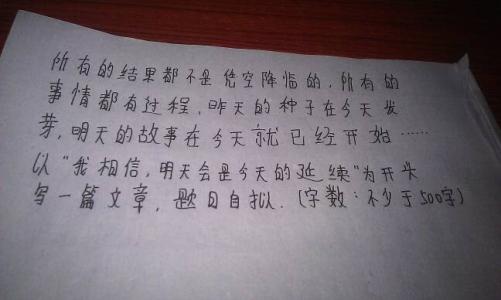 所有的结果都不是凭空降临的，所有的
事情都有过程，昨天的种子在今天发
芽，明天的故事在今天就已经开始……
以“我相信，明天会是今天的延续”为开头
写一篇文章，题目自拟.（字数：不少于500字）